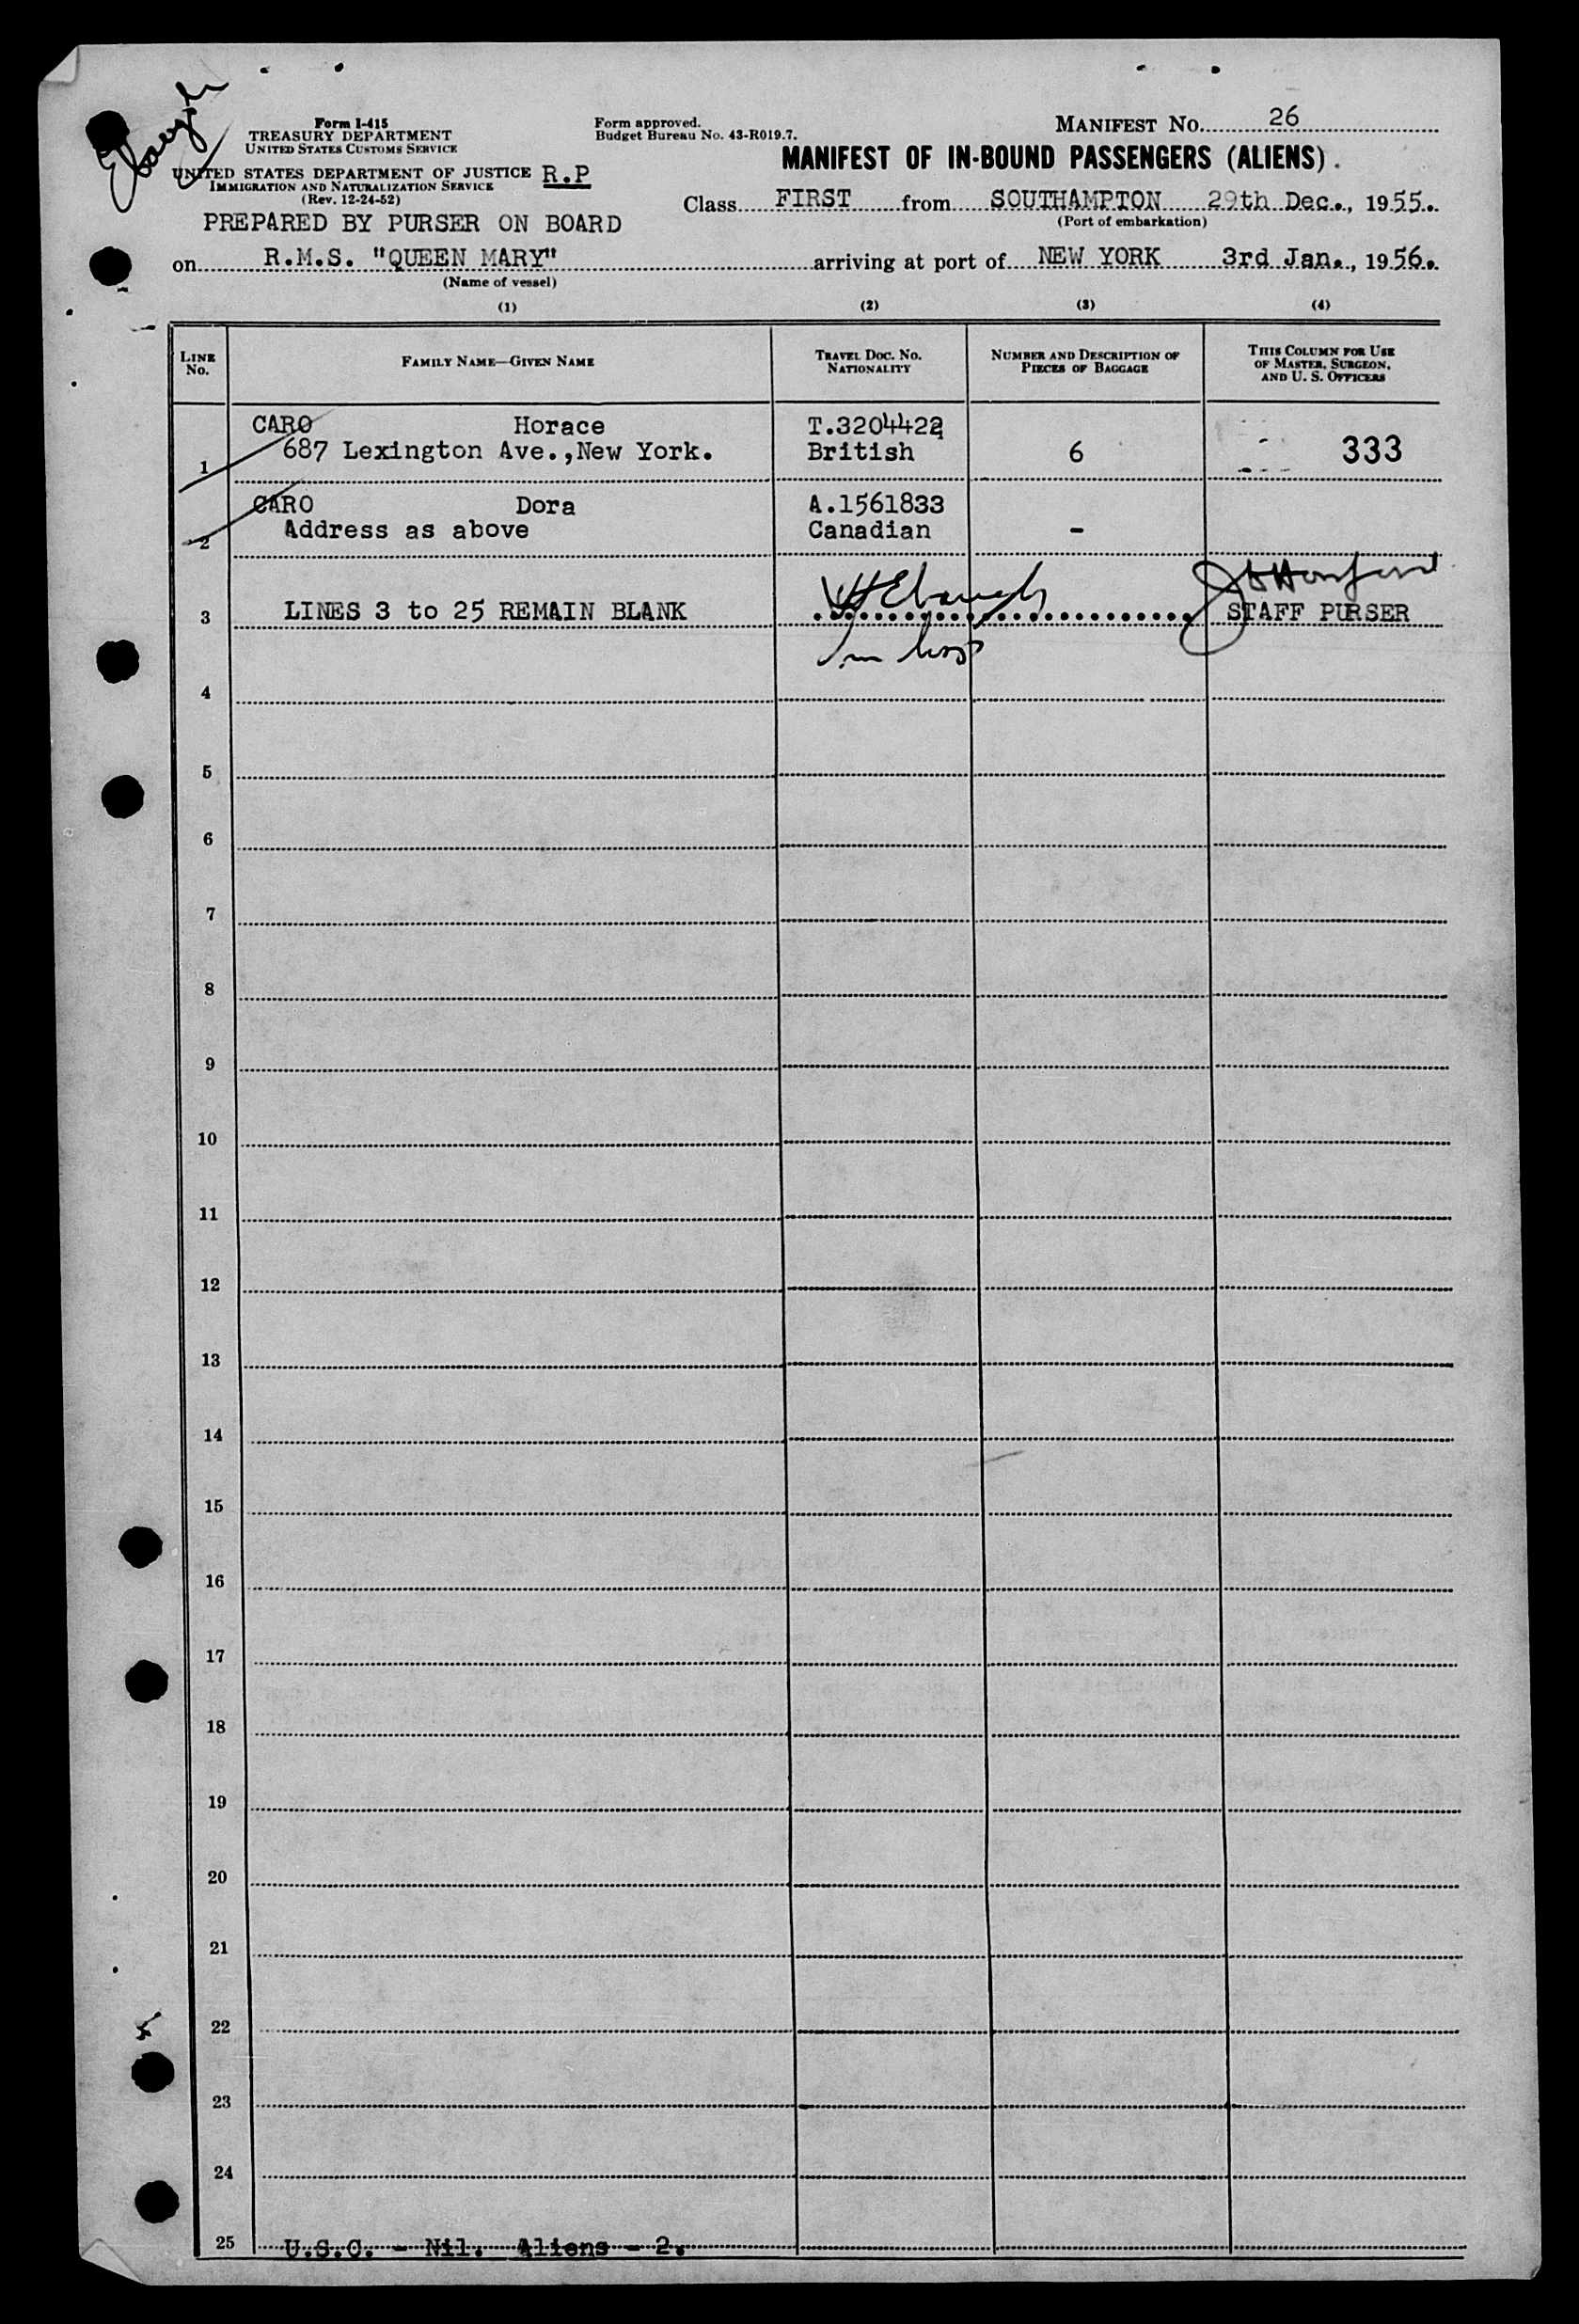 Ebaugh
Form I-415
TREASURY DEPARTMENT
UNITED STATES CUSTOMS SERVICE
UNITED STATES DEPARTMENT OF JUSTICE R.P
IMMIGRATION AND NATURALIZATION SERVICE
(Rev. 12-24-52)
PREPARED BY PURSER ON BOARD
Form approved.
Budget Bureau No. 43-R019.7.
MANIFEST No. 26
MANIFEST OF IN-BOUND PASSENGERS (ALIENS).
Class FIRST from SOUTHAMPTON 29th Dec., 1955.
(Port of embarkation)
on R.M.S. "QUEEN MARY" arriving at port of NEW YORK 3rd Jan., 1956.
(Name of vessel)
(1) (2) (3) (4)
LINE No.
FAMILY NAME—GIVEN NAME
TRAVEL DOC. No.
NATIONALITY
NUMBER AND DESCRIPTION OF
PIECES OF BAGGAGE
THIS COLUMN FOR USE
OF MASTER, SURGEON,
AND U. S. OFFICERS
CARO Horace T.3204422
1 687 Lexington Ave.,New York. British 6 333
CARO Dora A.1561833
2 Address as above Canadian -
3 LINES 3 to 25 REMAIN BLANK Ebaugh STAFF PURSER
4
5
6
7
8
9
10
11
12
13
14
15
16
17
18
19
20
21
22
23
24
25 U.S.C. - Nil. Aliens - 2.